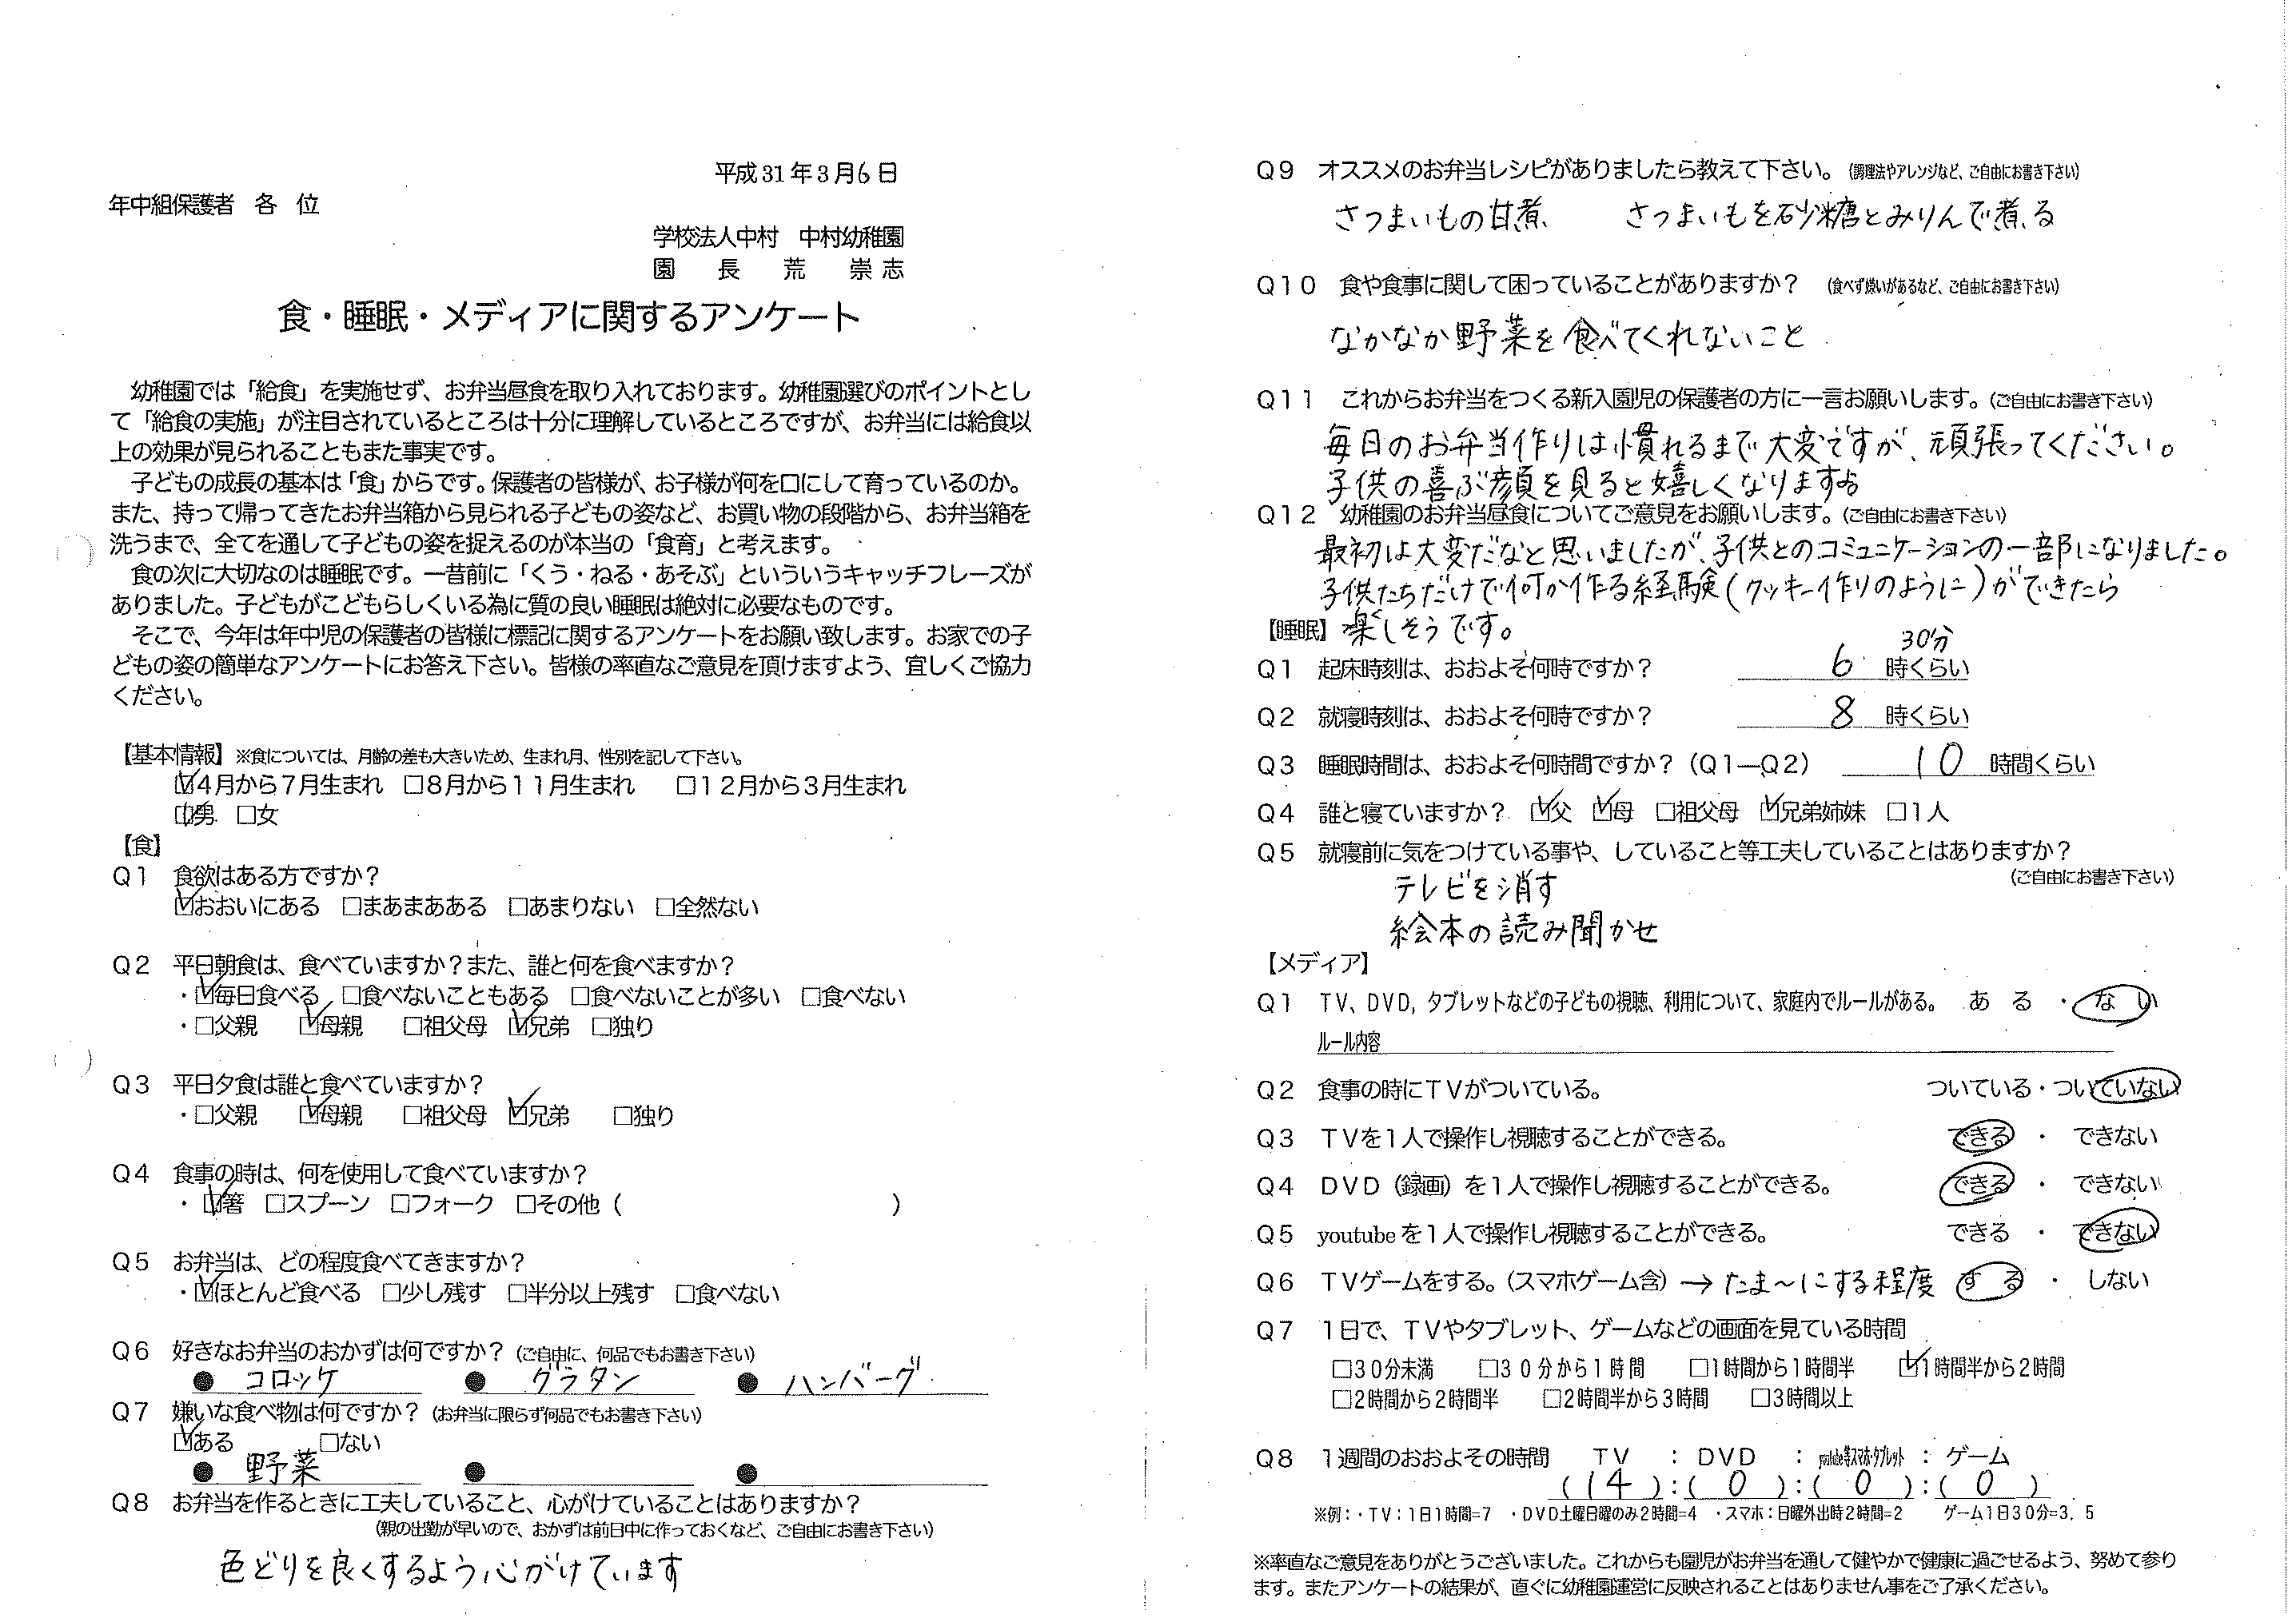 平成31年3月6日
年中組保護者　各　位
学校法人中村　中村幼稚園
園　長　荒　崇志
食・睡眠・メディアに関するアンケート
幼稚園では「給食」を実施せず、お弁当昼食を取り入れております。幼稚園選びのポイントとし
て「給食の実施」が注目されているところは十分に理解しているところですが、お弁当には給食以
上の効果が見られることもまた事実です。
子どもの成長の基本は「食」からです。保護者の皆様が、お子様が何を口にして育っているのか。
また、持って帰ってきたお弁当箱から見られる子どもの姿など、お買い物の段階から、お弁当箱を
洗うまで、全てを通して子どもの姿を捉えるのが本当の「食育」と考えます。
食の次に大切なのは睡眠です。一昔前に「くう・ねる・あそぶ」といういうキャッチフレーズが
ありました。子どもがこどもらしくいる為に質の良い睡眠は絶対に必要なものです。
そこで、今年は年中児の保護者の皆様に標記に関するアンケートをお願い致します。お家での子
どもの姿の簡単なアンケートにお答え下さい。皆様の率直なご意見を頂けますよう、宜しくご協力
ください。
【基本情報】※食については、月齢の差も大きいため、生まれ月、性別を記して下さい。
☑4月から7月生まれ　□8月から11月生まれ　□12月から3月生まれ
☑男　□女
【食】
Q1　食欲はある方ですか？
☑おおいにある　□まあまあある　□あまりない　□全然ない
Q2　平日朝食は、食べていますか？また、誰と何を食べますか？
・☑毎日食べる　□食べないこともある　□食べないことが多い　□食べない
・□父親　☑母親　□祖父母　☑兄弟　□独り
Q3　平日夕食は誰と食べていますか？
・□父親　☑母親　□祖父母　☑兄弟　□独り
Q4　食事の時は、何を使用して食べていますか？
・☑箸　□スプーン　□フォーク　□その他（　　　　）
Q5　お弁当は、どの程度食べてきますか？
・☑ほとんど食べる　□少し残す　□半分以上残す　□食べない
Q6　好きなお弁当のおかずは何ですか？（ご自由に、何品でもお書き下さい）
●　コロッケ　●　グラタン　●　ハンバーグ
Q7　嫌いな食べ物は何ですか？（お弁当に限らず何品でもお書き下さい）
☑ある　□ない
●　野菜　●　●
Q8　お弁当を作るときに工夫していること、心がけていることはありますか？
（親の出勤が早いので、おかずは前日中に作っておくなど、ご自由にお書き下さい）
色どりを良くするよう心がけています
Q9　オススメのお弁当レシピがありましたら教えて下さい。（調理法やアレンジなど、ご自由にお書き下さい）
さつまいもの甘煮　さつまいもを砂糖とみりんで煮る
Q10　食や食事に関して困っていることがありますか？（食べず嫌いがあるなど、ご自由にお書き下さい）
なかなか野菜を食べてくれないこと
Q11　これからお弁当をつくる新入園児の保護者の方に一言お願いします。（ご自由にお書き下さい）
毎日のお弁当作りは慣れるまで大変ですが、頑張ってください。
子供の喜ぶ顔を見ると嬉しくなります
Q12　幼稚園のお弁当昼食についてご意見をお願いします。（ご自由にお書き下さい）
最初は大変だなと思いましたが、子供とのコミュニケーションの一部になりました。
子供たちだけで何か作る経験（クッキー作りのように）ができたら
楽しそうです。
【睡眠】
Q1　起床時刻は、おおよそ何時ですか？　6　時くらい　30分
Q2　就寝時刻は、おおよそ何時ですか？　8　時くらい
Q3　睡眠時間は、おおよそ何時間ですか？（Q1―Q2）　10　時間くらい
Q4　誰と寝ていますか？　☑父　☑母　□祖父母　☑兄弟姉妹　□1人
Q5　就寝前に気をつけている事や、していること等工夫していることはありますか？
（ご自由にお書き下さい）
テレビを消す
絵本の読み聞かせ
【メディア】
Q1　TV、DVD，タブレットなどの子どもの視聴、利用について、家庭内でルールがある。　ある　・　ない
ルール内容
Q2　食事の時にTVがついている。　ついている・ついていない
Q3　TVを1人で操作し視聴することができる。　できる　・　できない
Q4　DVD（録画）を1人で操作し視聴することができる。　できる　・　できない
Q5　youtubeを1人で操作し視聴することができる。　できる　・　できない
Q6　TVゲームをする。（スマホゲーム含）→たま〜にする程度　する　・　しない
Q7　1日で、TVやタブレット、ゲームなどの画面を見ている時間
□30分未満　□30分から1時間　□1時間から1時間半　☑1時間半から2時間
□2時間から2時間半　□2時間半から3時間　□3時間以上
Q8　1週間のおおよその時間　TV　：　DVD　：　youtube等スマホ・タブレット　：　ゲーム
（14）：（0）：（0）：（0）
※例：・TV：1日1時間=7　・DVD土曜日曜のみ2時間=4　・スマホ：日曜外出時2時間=2　ゲーム1日30分=3．5
※率直なご意見をありがとうございました。これからも園児がお弁当を通して健やかで健康に過ごせるよう、努めて参り
ます。またアンケートの結果が、直ぐに幼稚園運営に反映されることはありません事をご了承ください。